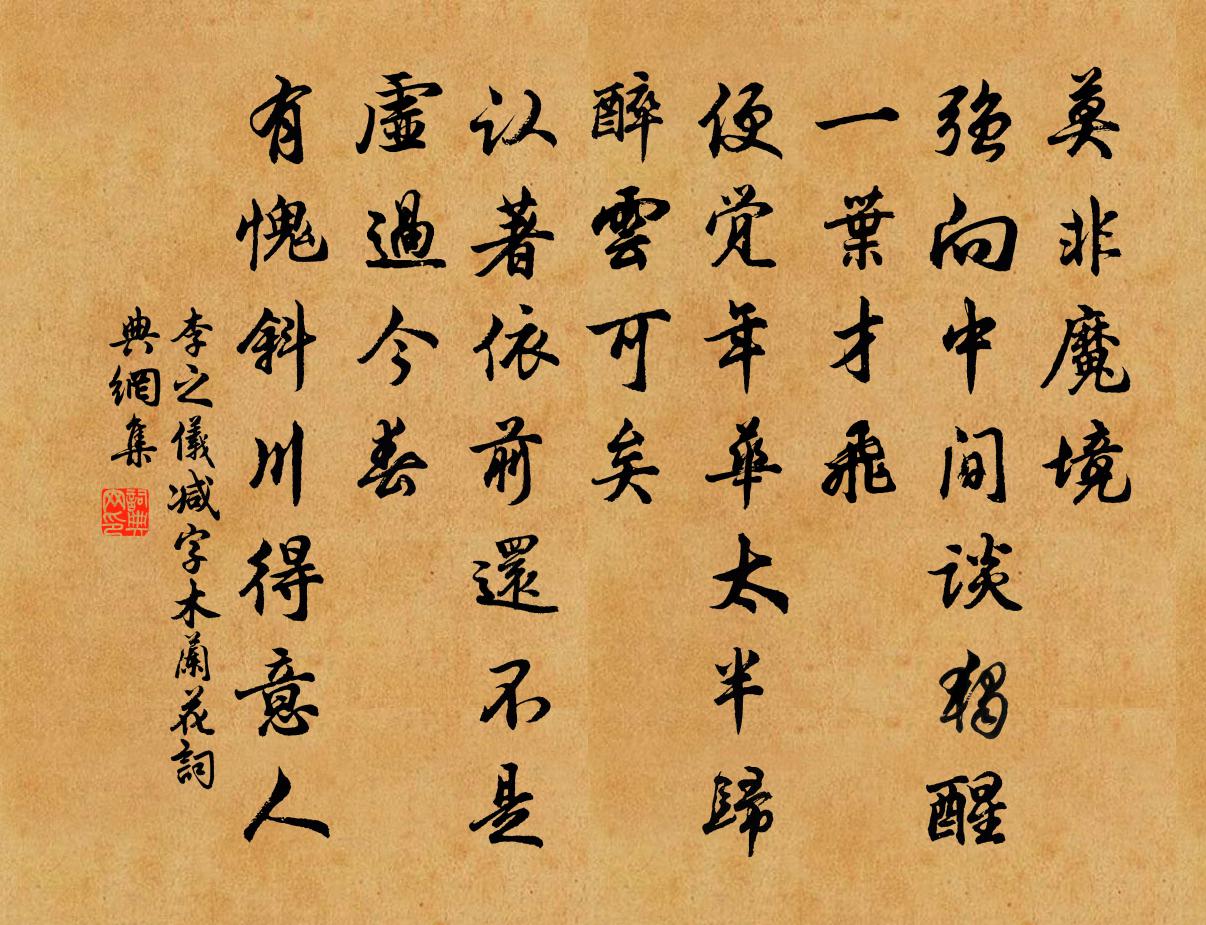 莫非魔境
强向中间谈独醒
一葉才飛
便觉年華太半歸
醉雲可矣
认著依前還不是
虛過今春
有愧斜川得意人
李之儀减字木蘭花詞
典網集
詞典网印